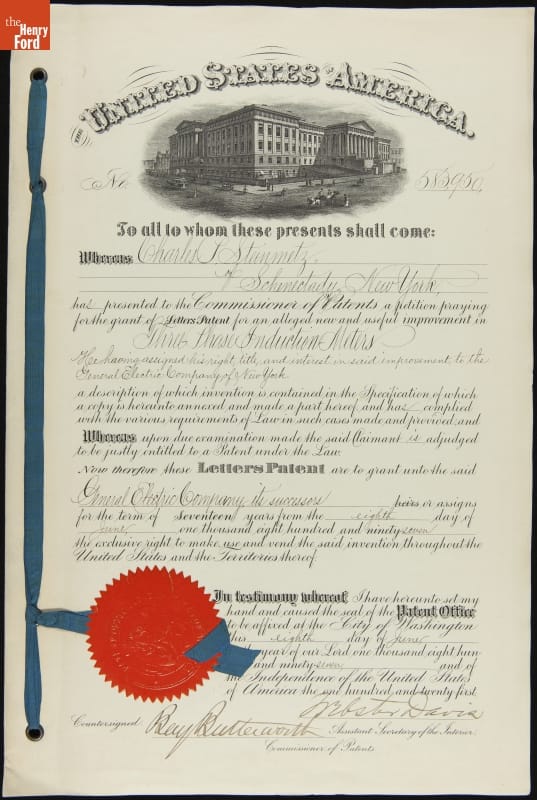 the
Henry
Ford
THE UNITED STATES OF AMERICA.
No. 583950,
To all to whom these presents shall come:
Whereas Charles P. Steinmetz,
of Schenectady, New York,
has presented to the Commissioner of Patents a petition praying
for the grant of Letters Patent for an alleged new and useful improvement in
Three Phase Induction Meters
He having assigned his right, title, and interest in said improvement to the
General Electric Company of New York
a description of which invention is contained in the Specification of which
a copy is hereunto annexed and made a part hereof, and has complied
with the various requirements of Law in such cases made and provided, and
Whereas upon due examination made the said Claimant is adjudged
to be justly entitled to a Patent under the Law.
Now therefore these Letters Patent are to grant unto the said
General Electric Company, its successors heirs or assigns
for the term of Seventeen years from the eighth day of
June one thousand eight hundred and ninety-seven
the exclusive right to make, use and vend the said invention throughout the
United States and the Territories thereof.
In testimony whereof I have hereunto set my
hand and caused the seal of the Patent Office
to be affixed at the City of Washington
this eighth day of June
year of our Lord one thousand eight hun
and ninety-seven and of
the Independence of the United States
of America the one hundred and twenty first.
Webster Davis
Countersigned Benj Butterworth Assistant Secretary of the Interior.
Commissioner of Patents